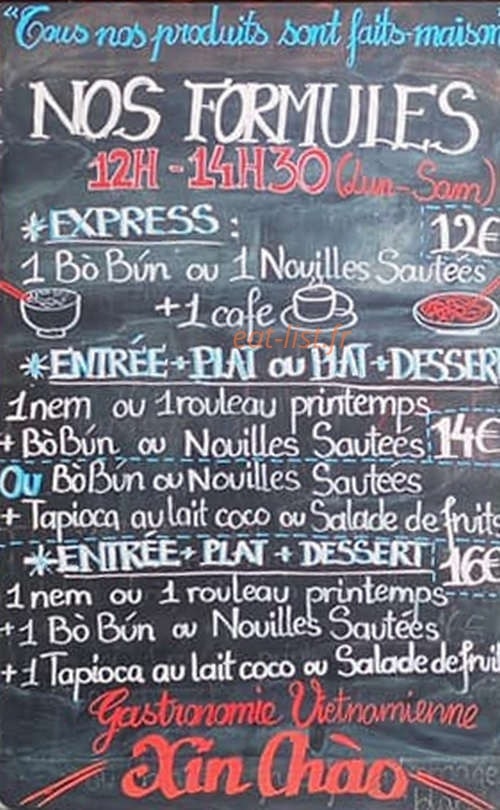 "Tous nos produits sont faits-maison
NOS FORMULES
12H - 14H30 (Lun-Sam)
*EXPRESS : 12€
1 Bò Bún ou 1 Nouilles Sautées
+1 cafe
eat-list.fr
*ENTRÉE+PLAT ou PLAT+DESSERT
1nem ou 1rouleau printemps
+ Bò Bún ou Nouilles Sauteés 14€
OU Bò Bún ou Nouilles Sautées
+ Tapioca au lait coco ou Salade de fruits
*ENTRÉE+ PLAT + DESSERT 16€
1 nem ou 1 rouleau printemps
+1 Bò Bún ou Nouilles Sautées
+1 Tapioca au lait coco ou Salade de fruit
Gastronomie Vietnamienne
Xin Chào